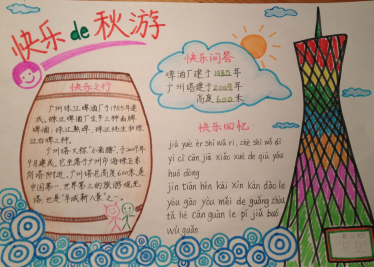 快乐de秋游
快乐之行
广州珠江啤酒厂于1985年建
成,珠江啤酒厂生产三种品牌
啤酒、珠江
珠江白啤三种。
广州塔又称"小蛮腰",于2009年
9月建成,它坐落于广州市海珠区赤
岗塔附近,广州塔总高度600米,是
中国第一、世界第三的旅游观光
塔,也是"羊城新八景"之一。
快乐问答
啤酒厂建于1985年
广州塔建于2009年
高度600米
快乐回忆
jiā yuè èr shí wǔ rì, zhè shì wǒ dì
yī cì cān jiā xiǎo xué de qiū yóu
huó dòng
jīn tiān hěn kāi xīn kàn dào le
yòu gāo yòu měi de guǎng zhōu
tǎ hé cān guān le pí jiǔ bó
wù guǎn